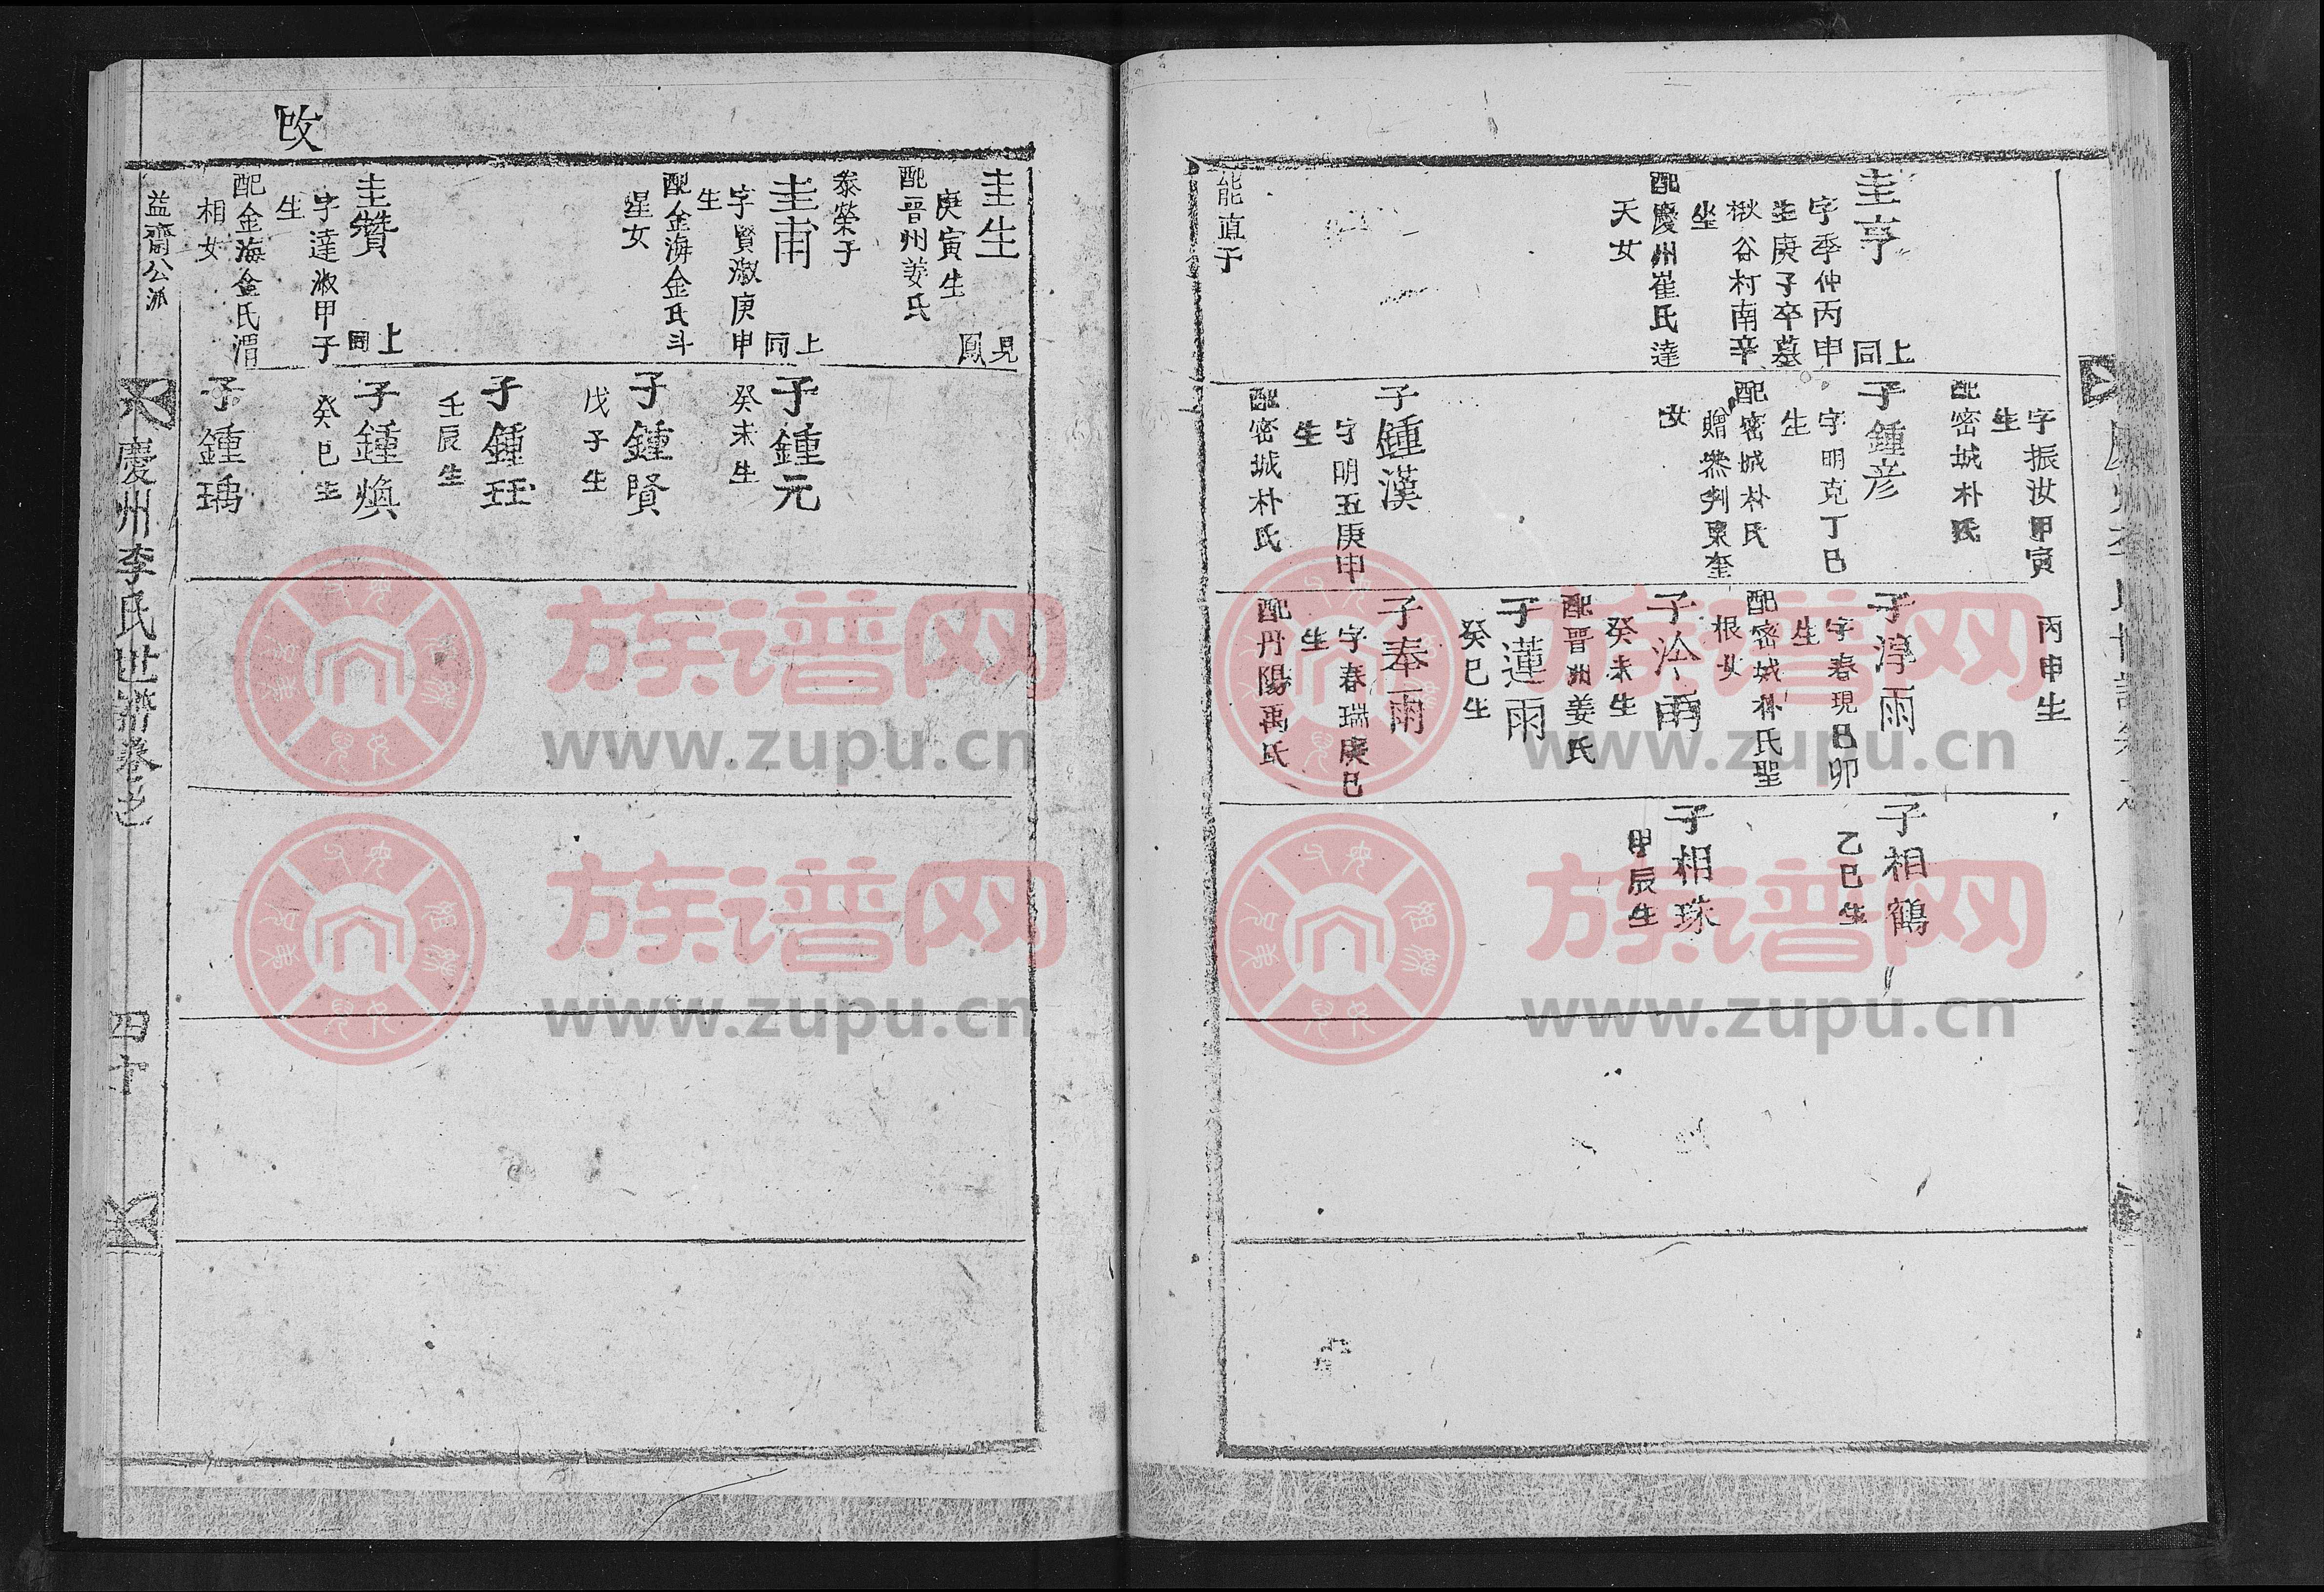 圭亨
上
同
字季仲丙申
生庚子卒墓
楸谷村南辛
坐
配慶州崔氏達
天女
能直子
字振汝甲寅
生
配密城朴氏
子鍾彦
字明克丁巳
生
配密城朴氏
贈叅判東奎
女
子鍾漢
字明五庚申
生
配密城朴氏
丙申生
子淳雨
字春現己卯
生
配密城朴氏聖
根女
子泠雨
癸未生
配晋州姜氏
子蓮雨
癸巳生
子奉雨
字春瑞庚巳
生
配丹陽禹氏
子相鶴
乙巳生
子相珠
甲辰生
改
圭生
見
鳳
庚寅生
配晋州姜氏
泰榮子
圭甫
上
同
字賢淑庚申
生
配金海金氏斗
星女
圭贊
上
同
字達淑甲子
生
配金海金氏渭
相女
子鍾元
癸未生
子鍾賢
戊子生
子鍾玨
壬辰生
子鍾煥
癸巳生
子鍾瑀
益齋公派
慶州李氏世譜卷之
四十
族谱网
www.zupu.cn
族谱网
www.zupu.cn
族谱网
www.zupu.cn
族谱网
www.zupu.cn